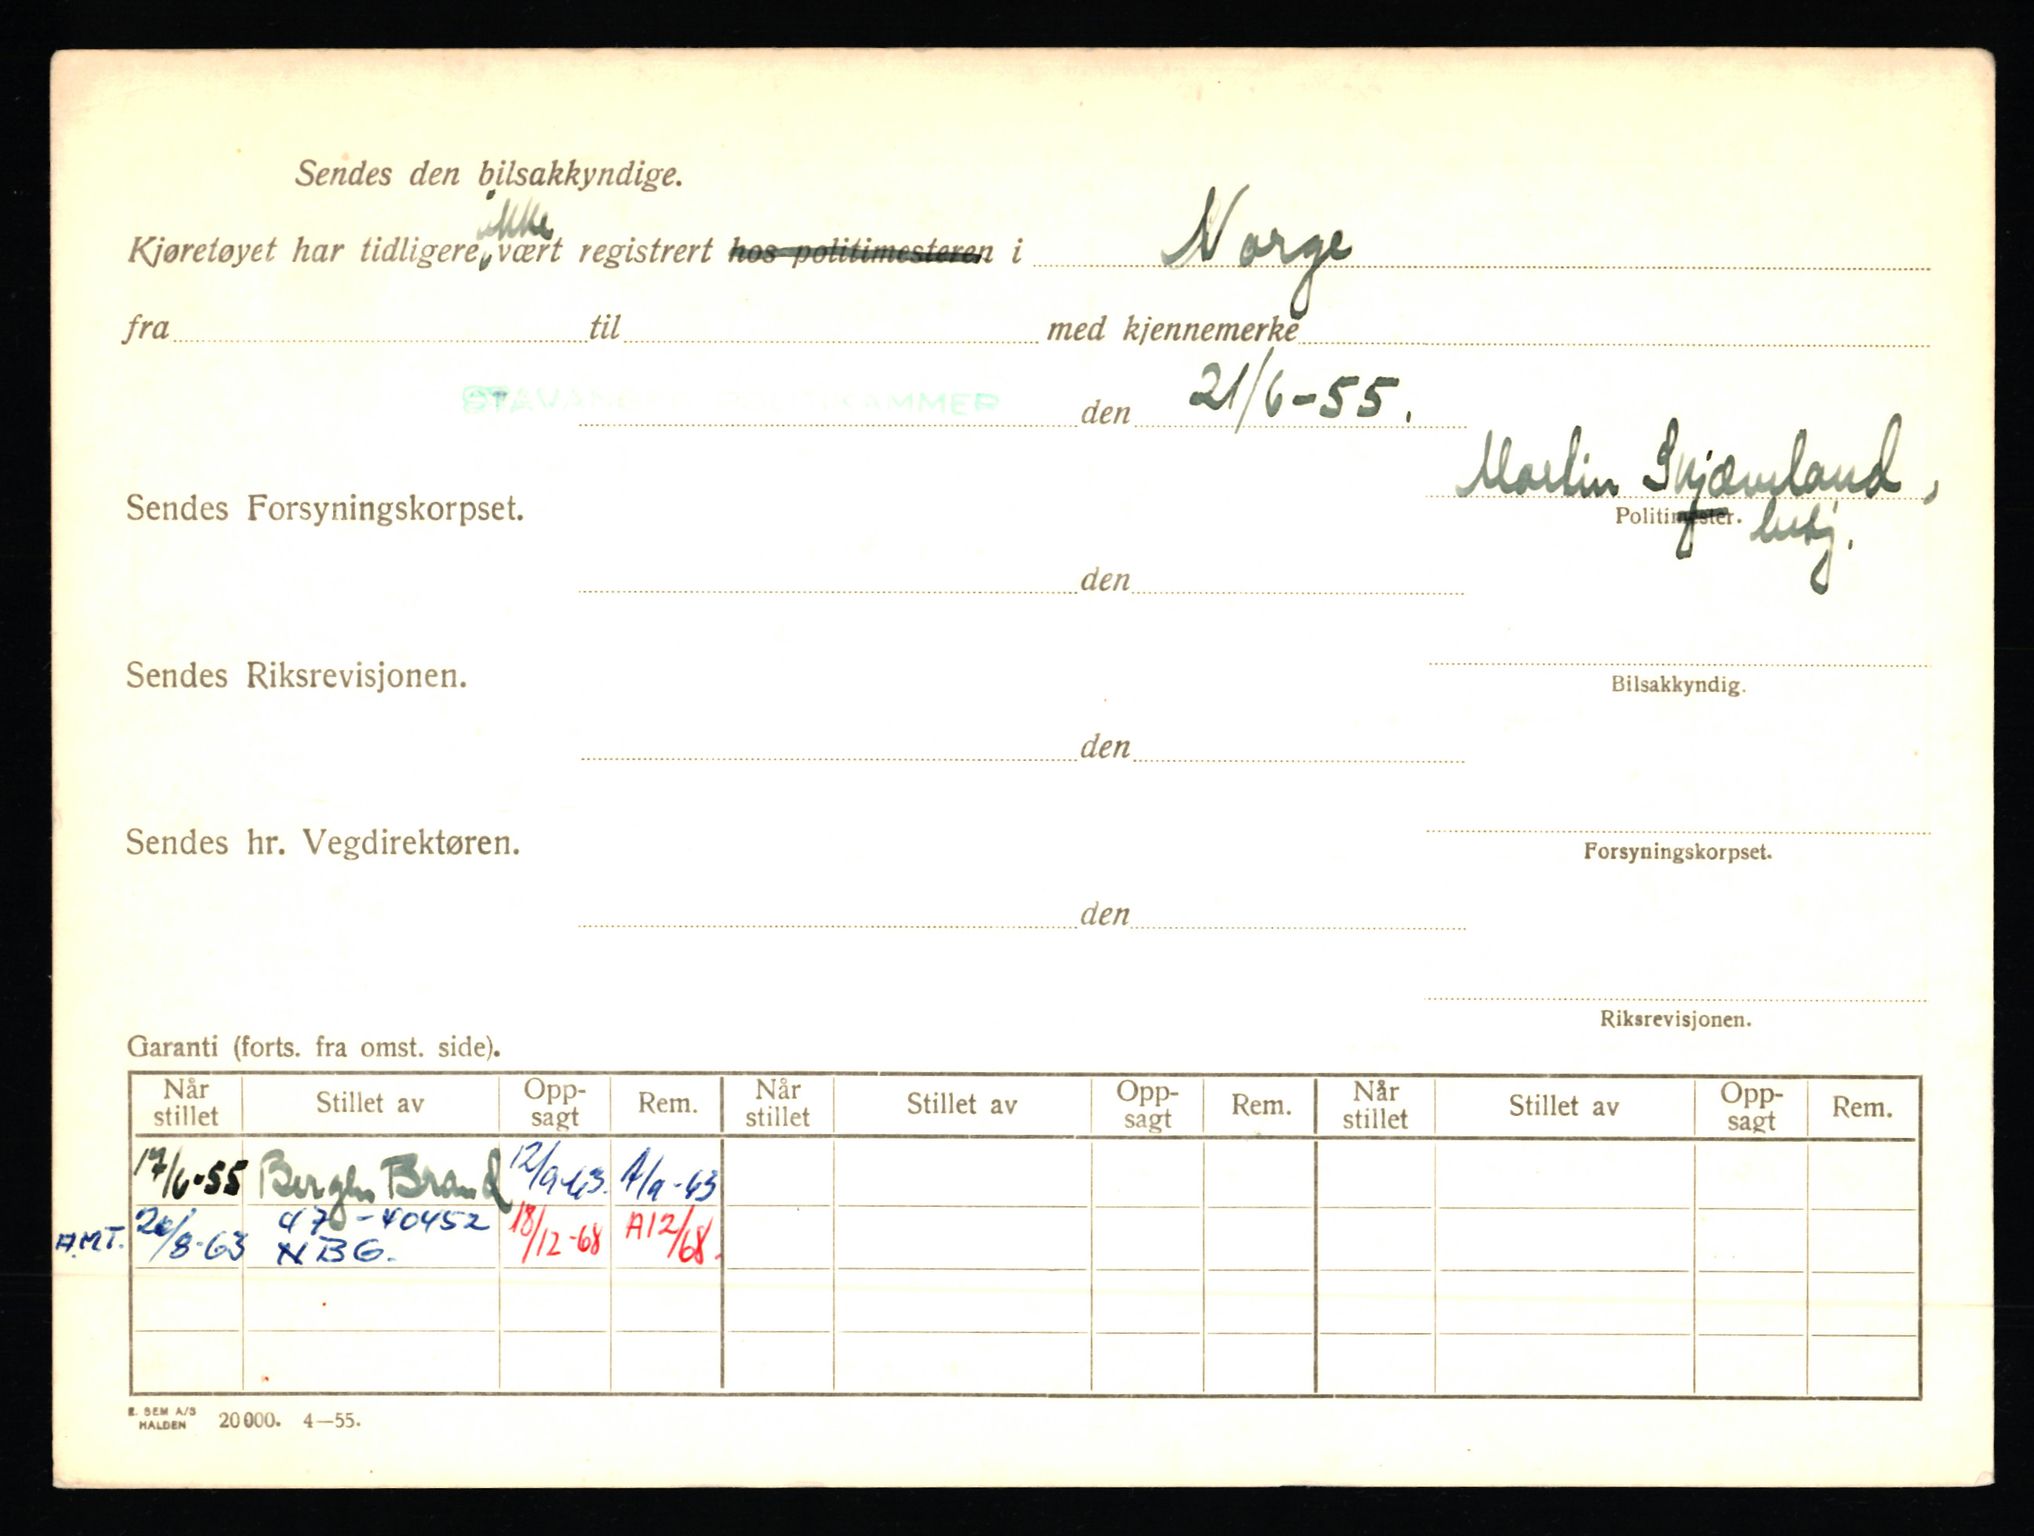 Sendes den bilsakkyndige.
ikke
Kjøretøyet har tidligere, vært registrert hos politimesteren i Norge
fra til med kjennemerke
STAVANGER POLITIKAMMER den 21/6-55.
Martin Skjæveland,
Sendes Forsyningskorpset.
Politimester.
den
Sendes Riksrevisjonen.
Bilsakkyndig.
den
Sendes hr. Vegdirektøren.
Forsyningskorpset.
den
Riksrevisjonen.
Garanti (forts. fra omst. side).
Når stillet Stillet av Opp-sagt Rem. Når stillet Stillet av Opp-sagt Rem. Når stillet Stillet av Opp-sagt Rem.
17/6-55 Bergen Brand 12/9-63. A/9-63
A.M.T. 20/8-63 47-40452 18/12-68 A12/68.
NBG.
E. SEM A/S
HALDEN 20000. 4—55.